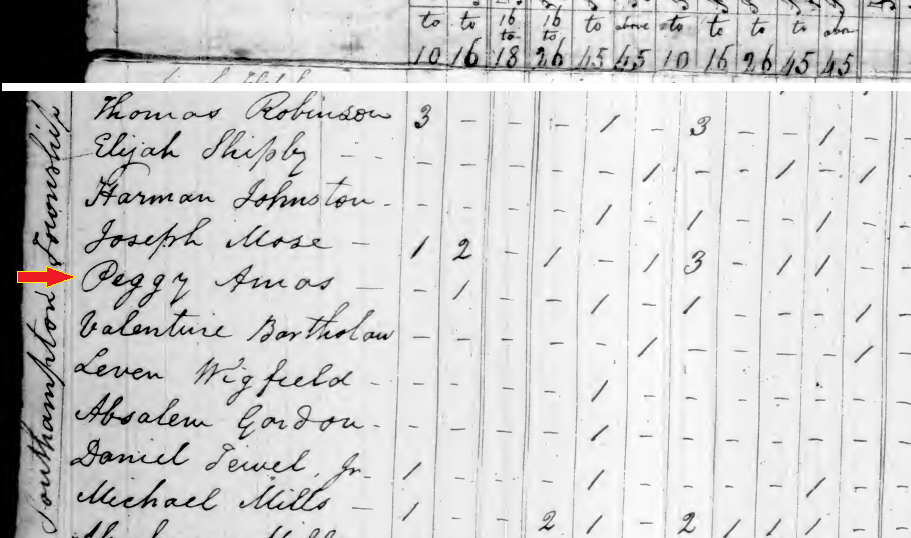 to to 16 16 to above to to to to abov
to to
10 16 18 26 45 45 10 16 26 45 45
Southampton Township
Thomas Robinson 3 - - - 1 - 3 - - 1 -
Elijah Shipby - - - - - 1 - - 1 - 1 -
Harman Johnston - - - - 1 - 1 - - 1 - -
Joseph Mose - 1 2 - 1 - 1 3 - 1 1 - -
Peggy Amos - - 1 - - 1 - 1 - - - 1 -
Valentine Bartholaw - - - - - 1 - - - - 1 -
Leven Wigfield - - - - - 1 - - - - - - -
Absalem Gordon - - - - - 1 - - - - - - -
Daniel Tewel Jr 1 - - - 1 - - - - 1 - -
Michael Mills - 1 - - 2 1 - 2 1 1 1 - -